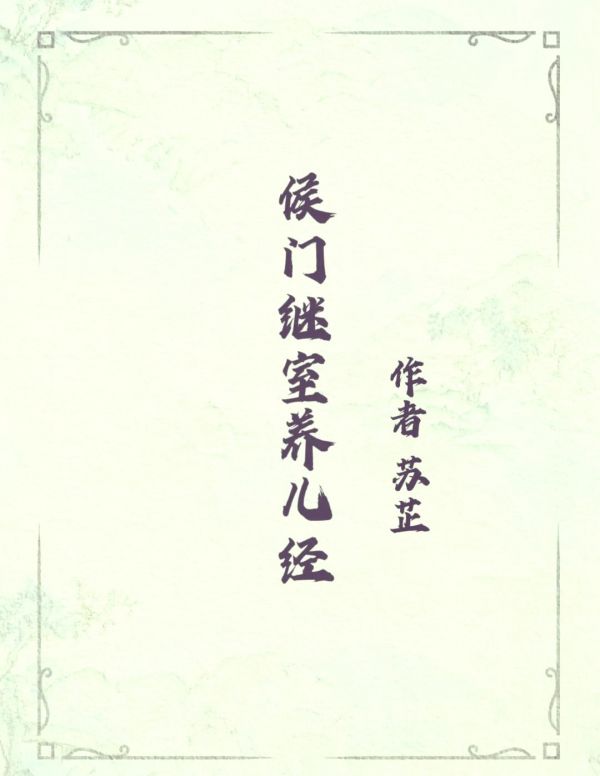 侯门继室养儿经
作者 苏芷